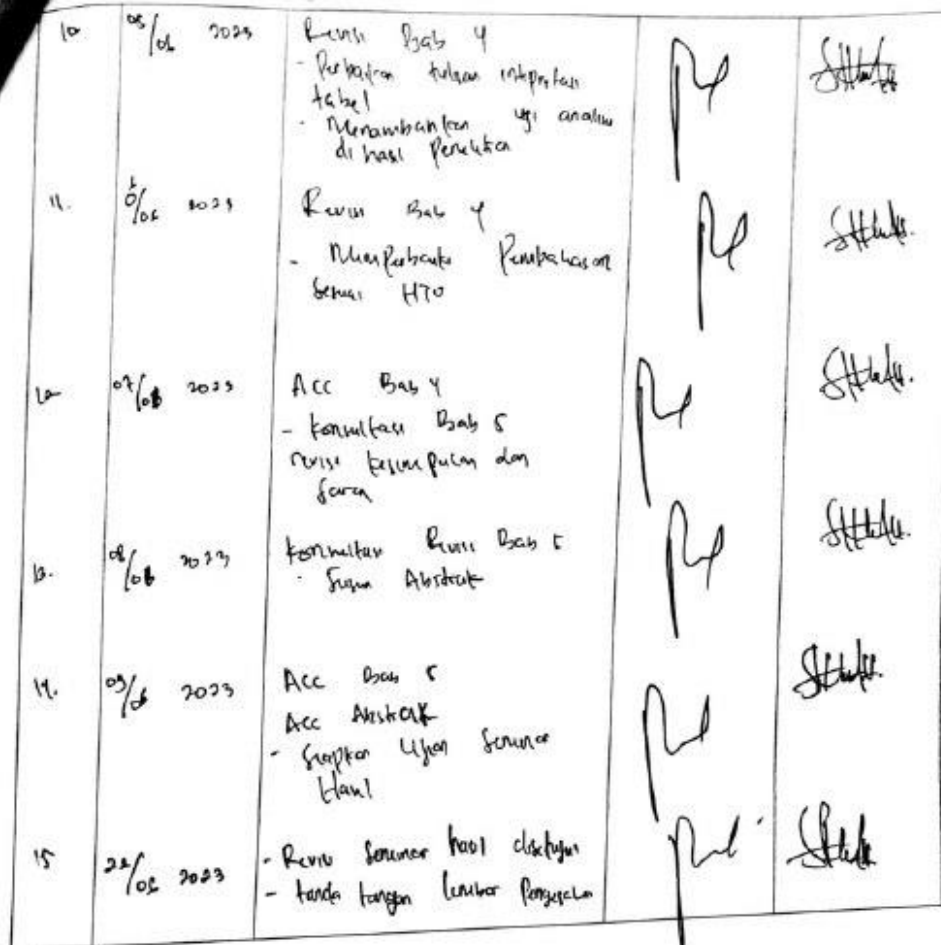 10 05/06 2023 Revisi Bab 4
- Perbaikan tulisan intepretasi
tabel
- Menambahkan uji analisis
di hasil Penelitian
11. 2023 Revisi Bab 4
- Memperbaiki Pembahasan
Sesuai HTO
12 07/06 2023 Acc Bab 4
- konsultasi Bab 5
revisi kesimpulan dan
Saran
13. 08/06 2023 konsultasi Revisi Bab 5
- Susun Abstrak
14. 09/6 2023 Acc Bab 5
Acc Abstrak
- Siapkan Ujian Seminar
Hasil
15 22/06 2023 - Revisi Seminar hasil disetujui
- tanda tangan lembar Pengesahan